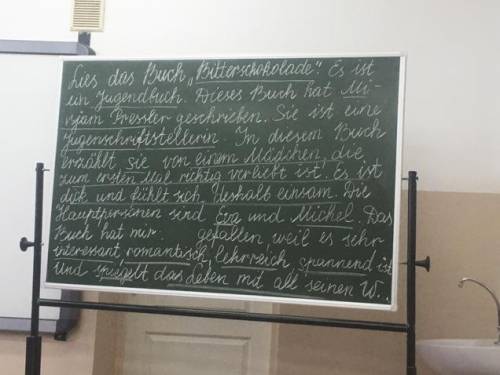 Lies das Buch „Bitterschokolade“. Es ist
ein Jugendbuch. Dieses Buch hat Mi-
rjam Pressler geschrieben. Sie ist eine
Jugenschriftstellerin. In diesem Buch
erzählt sie von einem Mädchen, die
zum ersten Mal richtig verliebt ist. Es ist
dick und fühlt sich deshalb einsam. Die
Hauptpersonen sind Eva und Michel. Das
Buch hat mir gefallen, weil es sehr
interessant, romantisch, lehrreich, spannend ist
und spiegelt das Leben mit all seinen W...